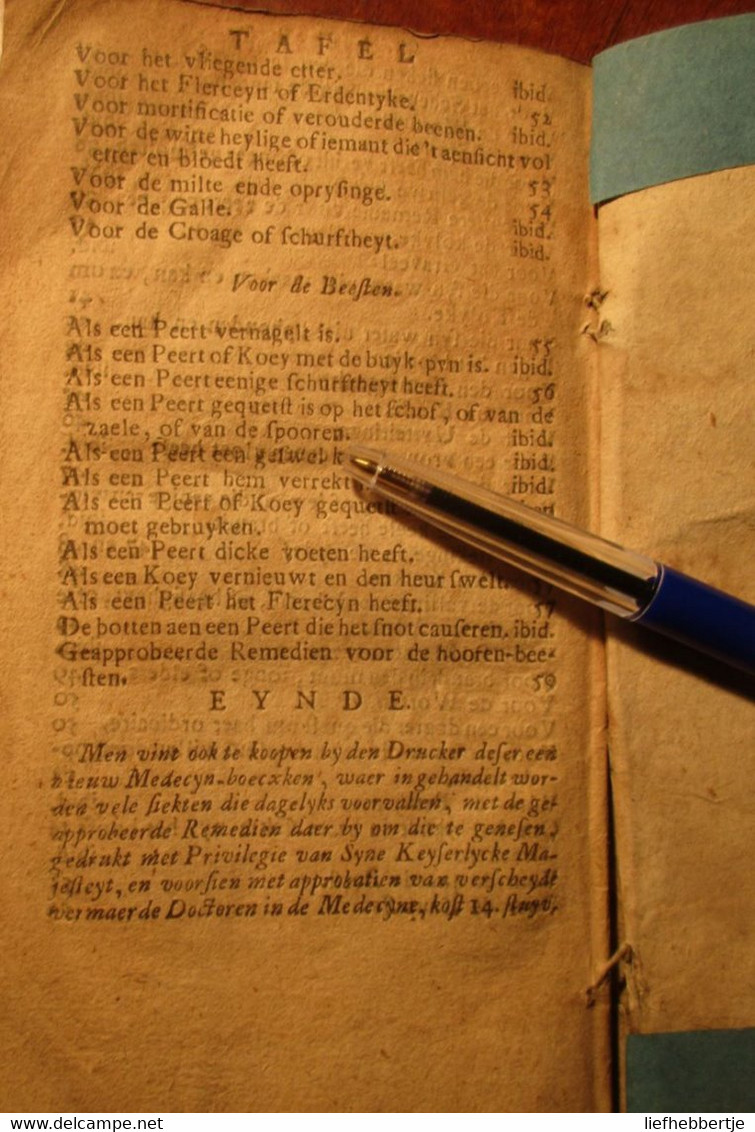 TAFEL
Voor het vliegende etter. ibid.
Voor het Flerceyn of Erdentyke. 52
Voor mortificatie of verouderde beenen. ibid.
Voor de witte heylige of iemant die 't aensicht vol
etter en bloedt heeft. 53
Voor de milte ende oprysinge. 54
Voor de Galle. ibid.
Voor de Croage of schurftheyt. ibid.
Voor de Beesten.
Als een Peert vernagelt is. 55
Als een Peert of Koey met de buyk pyn is. ibid.
Als een Peert eenige schurftheyt heeft. 56
Als een Peert gequetst is op het schof, of van de
zaele, of van de spooren. ibid.
Als een Peert een geswel ibid.
Als een Peert hem verrekt ibid.
Als een Peert of Koey gequetst
moet gebruyken.
Als een Peert dicke voeten heeft.
Als een Koey vernieuwt en den heur swelt. 57
Als een Peert het Flerecyn heeft. 57
De botten aen een Peert die het snot causeren. ibid.
Geapprobeerde Remedien voor de hooren-bee-
sten. 59
EYNDE.
Men vint ook te koopen by den Drucker deser een
nieuw Medecyn-boecxken, waer in gehandelt wor-
den vele siekten die dagelyks voorvallen, met de ge-
approbeerde Remedien daer by om die te genesen,
gedrukt met Privilegie van Syne Keyserlycke Ma-
jesteyt, en voorsien met approbatien van verscheyde
vermaerde Doctoren in de Medecyne, kost 14. stuyv.
DELCAMPE.NET
liefhebbertje